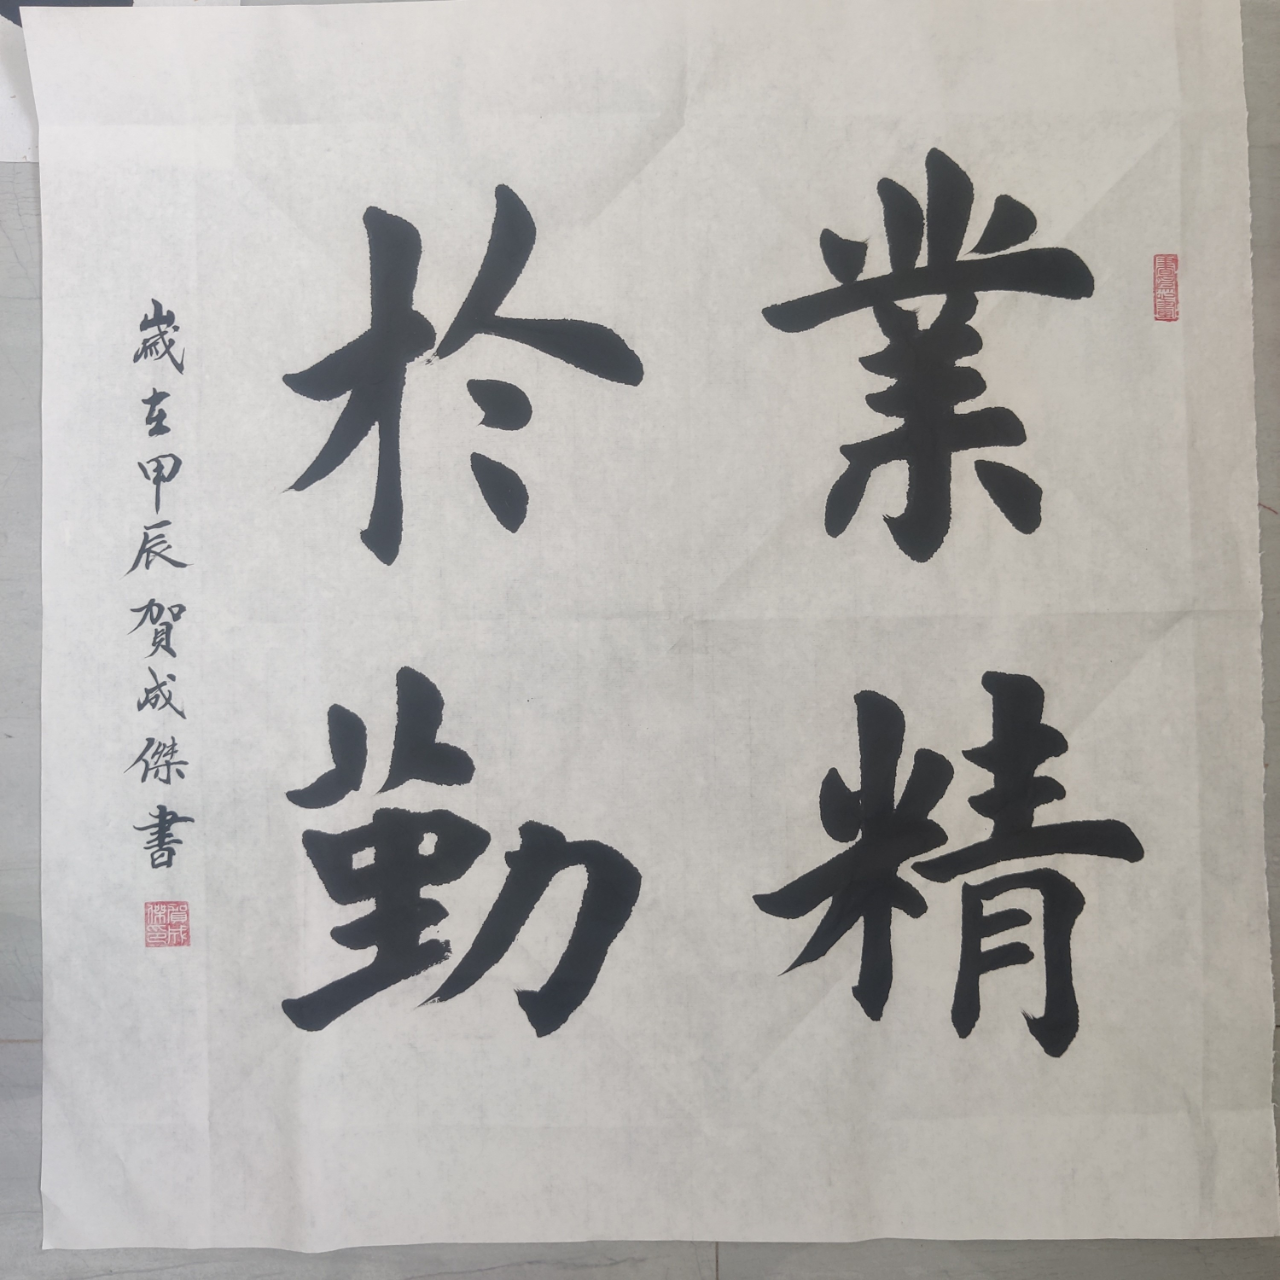 業精
於勤
歲在甲辰賀成傑書
賀成
傑印